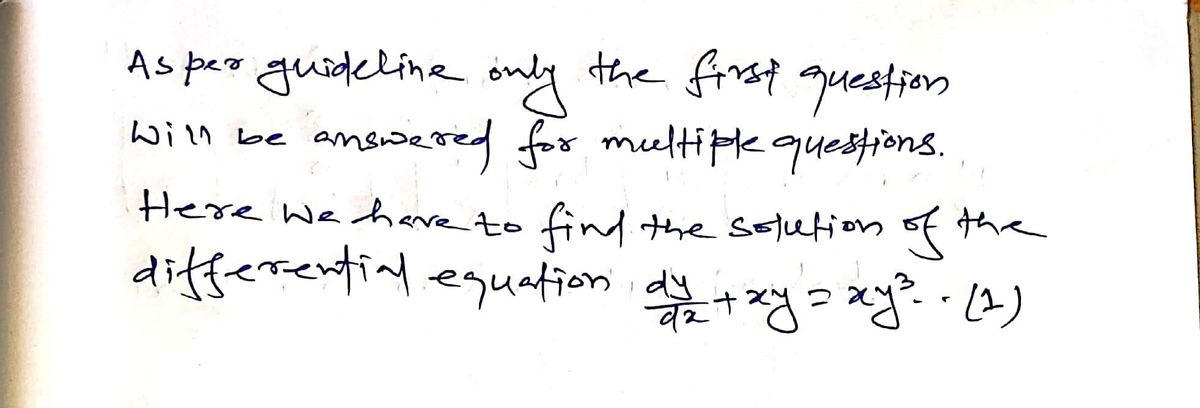 As per guideline only the first question
will be answered for multiple questions.
Here we have to find the solution of the
differential equation dy/dx + xy = xy³ . . (1)